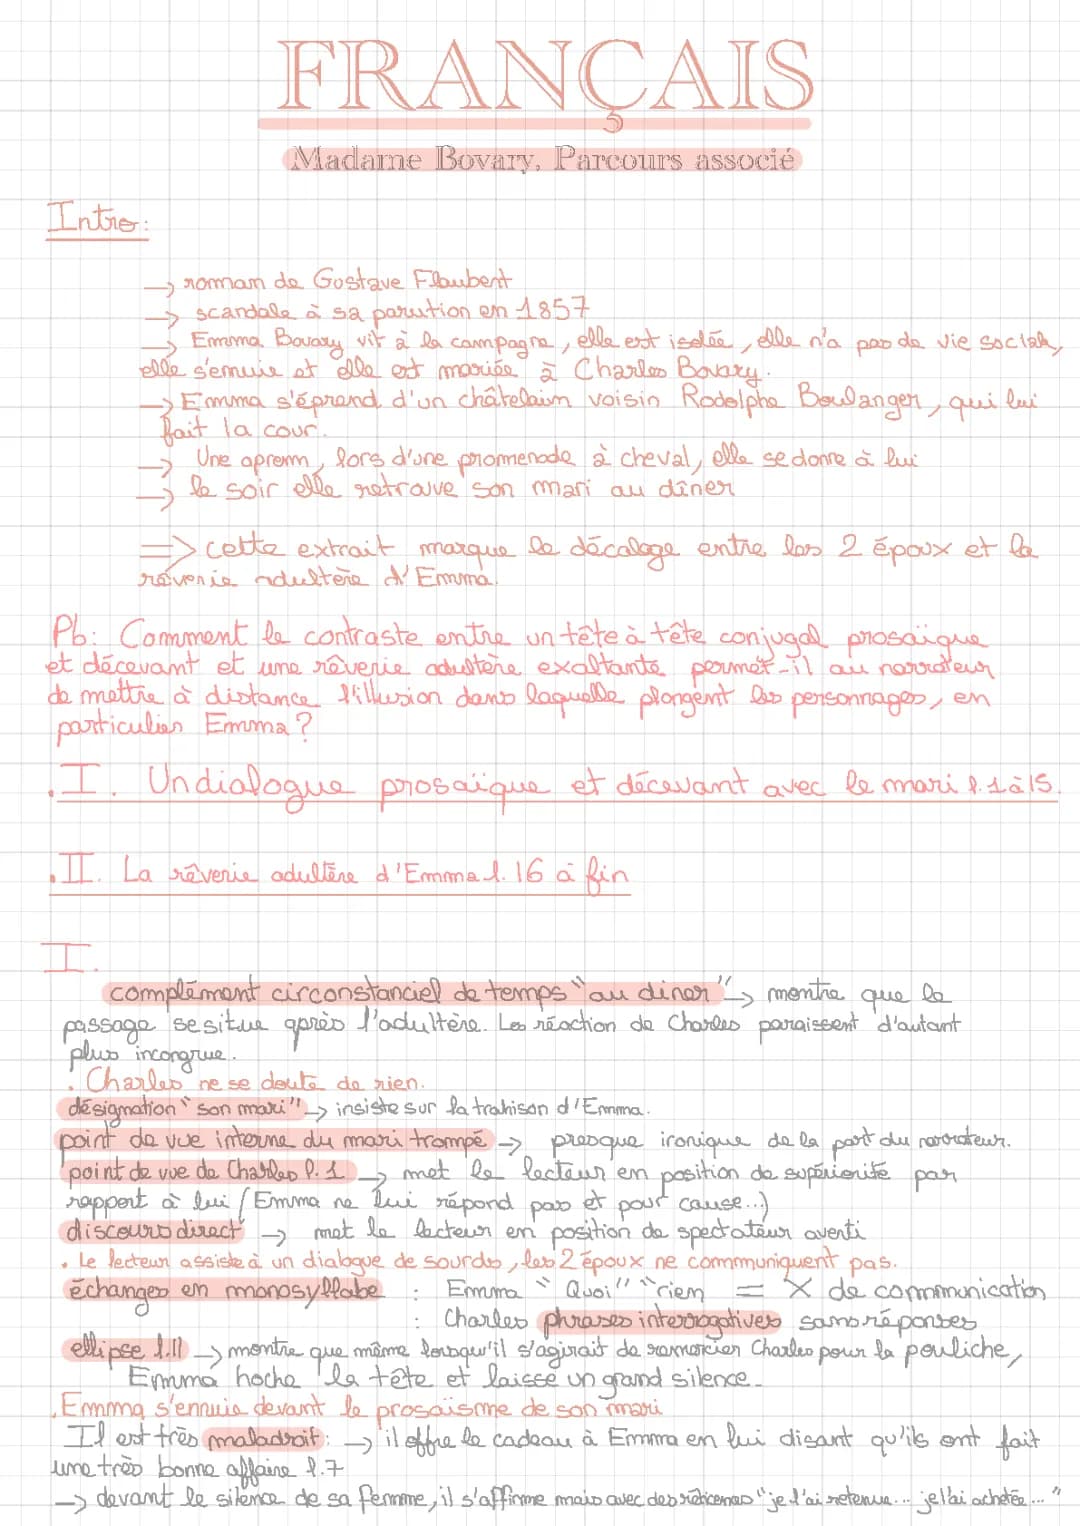 FRANÇAIS
Madame Bovary, Parcours associé
Intro:
→ roman de Gustave Flaubert
→ scandale à sa parution en 1857
→ Emma Bovary vit à la campagne, elle est isolée, elle n'a pas de vie sociale,
elle s'ennuie et elle est mariée à Charles Bovary.
→ Emma s'éprend d'un châtelain voisin Rodolphe Boulanger, qui lui
fait la cour.
→ Une aprem, lors d'une promenade à cheval, elle se donne à lui
→ le soir elle retrouve son mari au dîner
=> cette extrait marque le décalage entre les 2 époux et la
rêverie adultère d'Emma.
Pb: Comment le contraste entre un tête à tête conjugal prosaïque
et décevant et une rêverie adultère exaltante permet-il au narrateur
de mettre à distance l'illusion dans laquelle plongent les personnages, en
particulier Emma?
.I. Un dialogue prosaïque et décevant avec le mari l.1 à 15.
.II. La rêverie adultère d'Emma l.16 à fin
I.
complément circonstanciel de temps "au diner" → montre que le
passage se situe après l'adultère. Les réaction de Charles paraissent d'autant
plus incongrue.
. Charles ne se doute de rien.
désignation "son mari" → insiste sur la trahison d'Emma.
point de vue interne du mari trompé → presque ironique de la part du narrateur.
point de vue de Charles l.1 → met le lecteur en position de supériorité par
rapport à lui (Emma ne lui répond pas et pour cause...)
discours direct → met le lecteur en position de spectateur averti
. Le lecteur assiste à un dialogue de sourds, les 2 époux ne communiquent pas.
échanges en monosyllabe : Emma "Quoi" "rien = X de communication
: Charles phrases interrogatives sans réponses
ellipse l.11 → montre que même lorsqu'il s'agirait de remercier Charles pour la pouliche,
Emma hoche la tête et laisse un grand silence.
. Emma s'ennuie devant le prosaïsme de son mari
Il est très maladroit: → il offre le cadeau à Emma en lui disant qu'ils ont fait
une très bonne affaire l.7
→ devant le silence de sa femme, il s'affirme mais avec des réticences "je l'ai retenue... je l'ai achetée..."